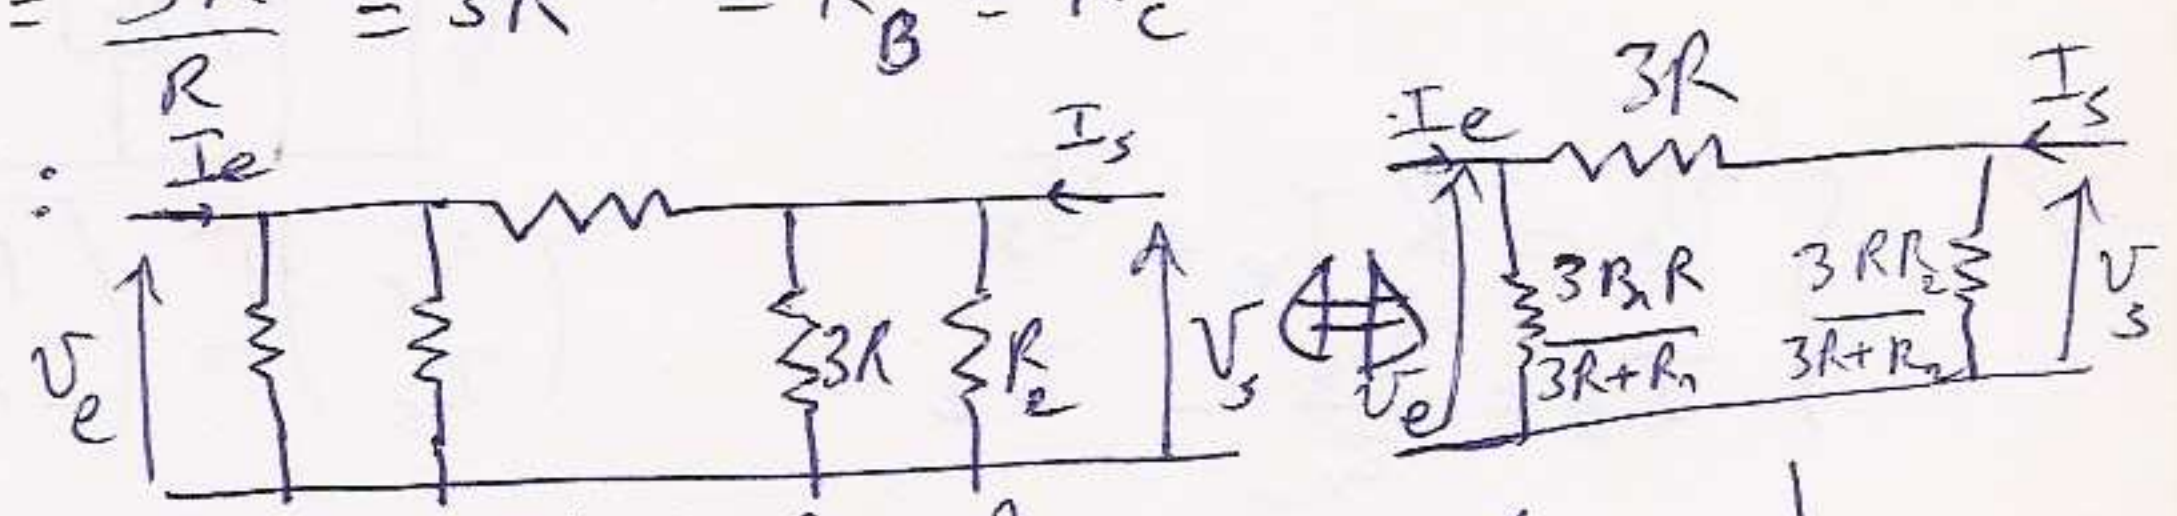 = 3R²/R = 3R = R_B = R_C
:
I_e
I_s
V_e
3R
R_2
V_s
⇔
I_e
3R
I_s
V_e
3R_1R/3R+R_1
3RR_2/3R+R_2
V_s